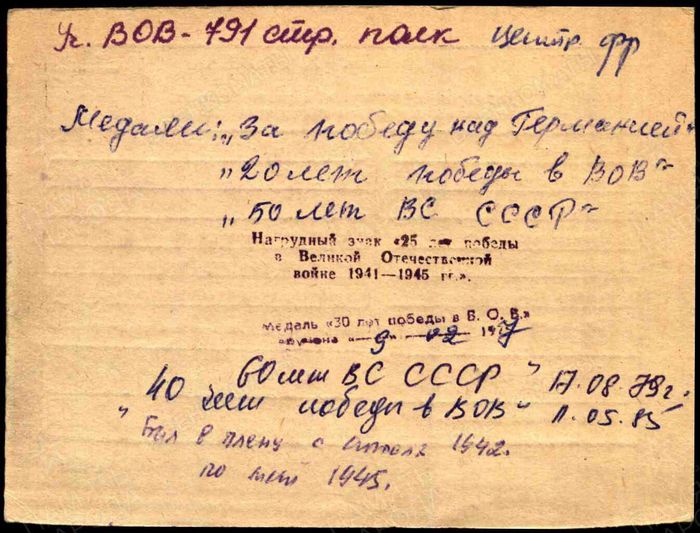 Уч. ВОВ - 791 стр. полк Центр. фр
Медали: „За победу над Германией“
„20 лет победы в ВОВ“
„50 лет ВС СССР“
Нагрудный знак «25 лет победы
в Великой Отечественной
войне 1941—1945 гг.».
Медаль «30 лет победы в В. О. В.»
вручена «9» 02 197
60 лет ВС СССР" 17.08.79г.
„40 лет победы в ВОВ" 11.05.85
Был в плену с 1942.
по май 1945.